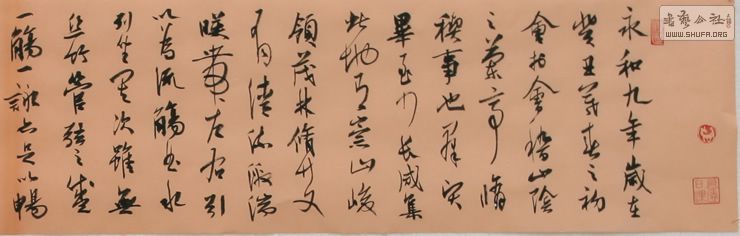 永和九年歲在
癸丑暮春之初
會於會稽山陰
之蘭亭脩
禊事也羣賢
畢至少長咸集
此地有崇山峻
領茂林脩竹又
有清流激湍
暎帶左右引
以為流觴曲水
列坐其次雖無
絲竹管弦之盛
一觴一詠亦足以暢
书艺公社
WWW.SHUFA.ORG